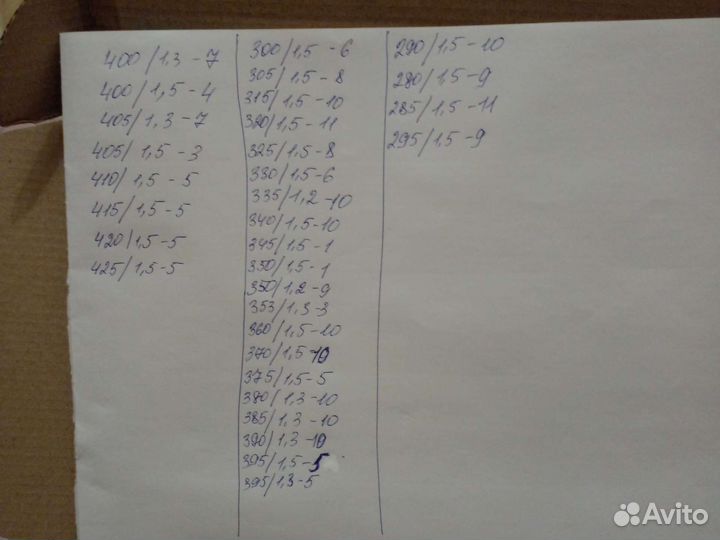 400/1,3-7
400/1,5-4
405/1,3-7
405/1,5-3
410/1,5-5
415/1,5-5
420/1,5-5
425/1,5-5
300/1,5-6
305/1,5-8
315/1,5-10
320/1,5-11
325/1,5-8
330/1,5-6
335/1,2-10
340/1,5-10
345/1,5-1
350/1,5-1
350/1,2-9
353/1,3-3
360/1,5-10
370/1,5-10
375/1,5-5
380/1,3-10
385/1,3-10
390/1,3-10
395/1,5-5
395/1,3-5
290/1,5-10
280/1,5-9
285/1,5-11
295/1,5-9
Avito